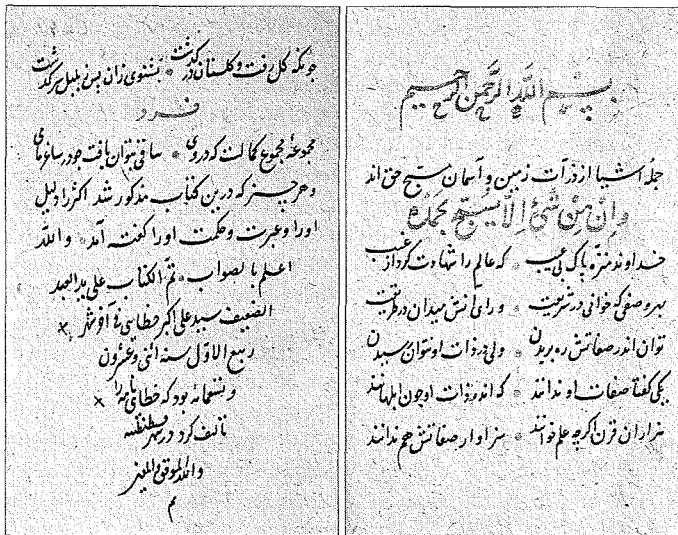 بسم الله الرحمن الرحیم
جمله اشیا از ذرات زمین و آسمان مسبح حق اند
وان من شئ الا یسبح بحمده
خداوند منزه پاک بی عیب که عالم را شهادت کرد از غیب
بهر وصفی که خوانی در شریعت ورای آنش میدان در طریقت
توان اندر صفاتش ره بریدن ولی در ذات او نتوان رسیدن
یکی کفتا صفات او ندانند که اندر ذات او چون ابلهانند
هزاران قرن اکر چه علم خوانند سزاوار صفاتش هم ندانند
چونکه کل رفت و کلستان در کذشت نشنوی زان پس ز بلبل سرکذشت
فرد
مجموعهٔ مجموع کمالست که در وی ساقی نتوان یافت جز در ساغر
و هر چیز که درین کتاب مذکور شد اکثر را دلیل
اورا و عبرت و حکمت اورا کفته آمد والله
اعلم بالصواب تم الکتاب علی ید العبد
الضعیف سید علی اکبر خطایی فی آخر شهر
ربیع الاول سنه اثنی وعشرون
وتسعمائه بود که خطایی نامه را
تالیف کرد در شهر قسطنطنیه
والله الموفق والمعین
م